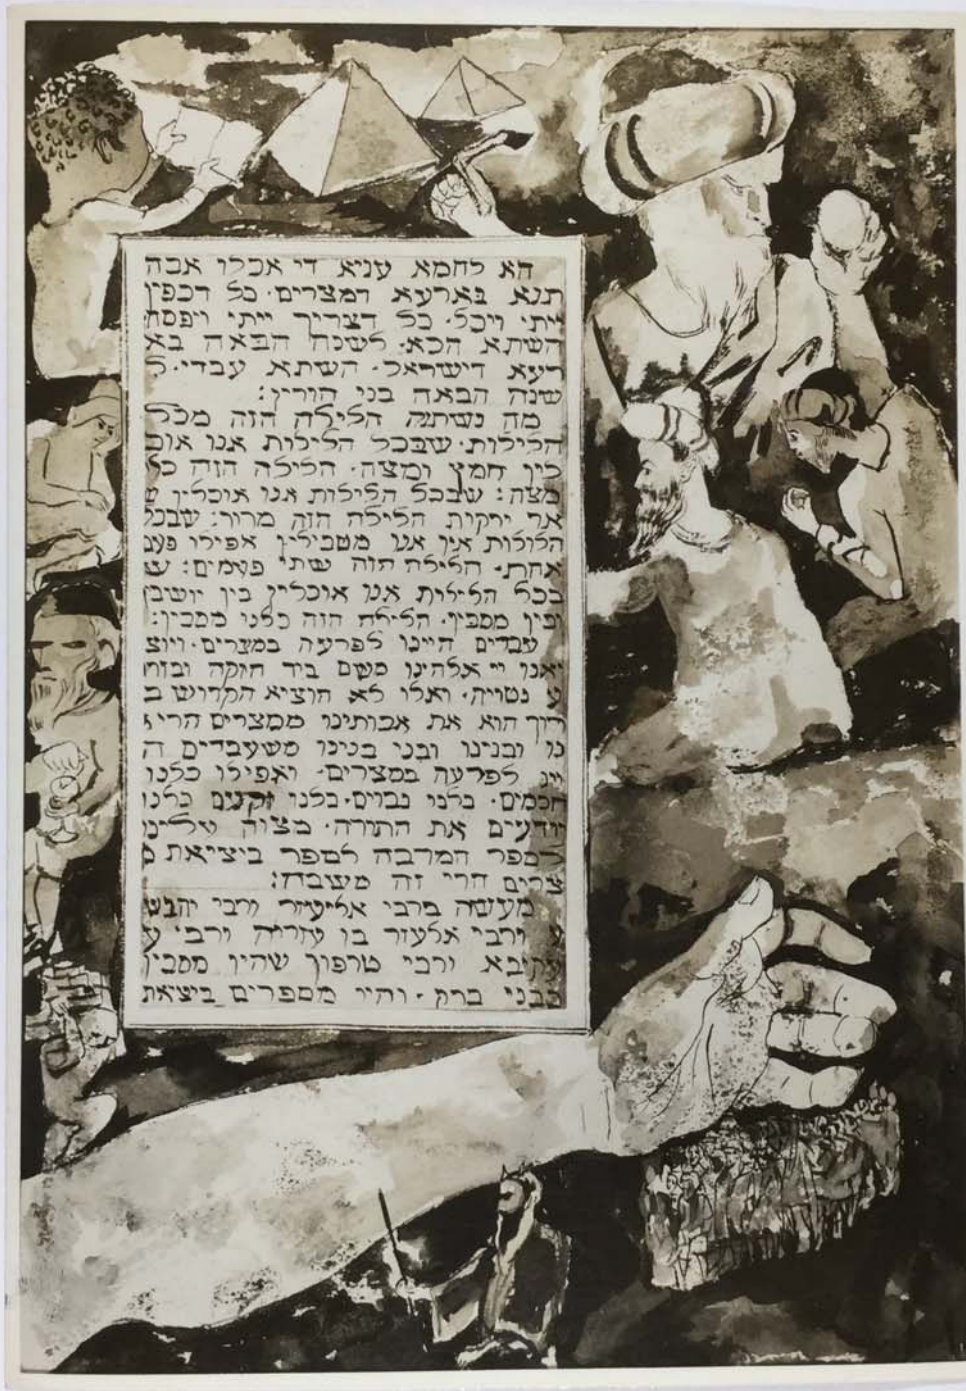 הא לחמא עניא די אכלו אבה
תנא בארעא דמצרים· כל דכפין
ייתי ויכל· כל דצריך ייתי ויפסח
השתא הכא· לשנה הבאה בא
רעא דישראל· השתא עבדי· ל
שנה הבאה בני חורין:
מה נשתנה הלילה הזה מכל
הלילות· שבכל הלילות אנו אוכ
לין חמץ ומצה· הלילה הזה כל
מצה: שבכל הלילות אנו אוכלין ש
אר ירקות הלילה הזה מרור: שבכל
הלילות אין אנו מטבילין אפילו פעם
אחת· הלילה הזה שתי פעמים: ש
בכל הלילות אנו אוכלין בין יושבין
ובין מסבין· הלילה הזה כלנו מסבין:
עבדים היינו לפרעה במצרים· ויוצ
יאנו יי אלהינו משם ביד חזקה ובזרו
ע נטויה· ואלו לא הוציא הקדוש ב
רוך הוא את אבותינו ממצרים הרי א
נו ובנינו ובני בנינו משעבדים ה
יינו לפרעה במצרים· ואפילו כלנו
חכמים· כלנו נבוים· כלנו זקנים כלנו
יודעים את התורה· מצוה עלינו
לספר המרבה לספר ביציאת מ
צרים הרי זה משבח:
מעשה ברבי אליעזר ורבי יהוש
ע ורבי אלעזר בן עזריה ורבי ע
קיבא ורבי טרפון שהיו מסבין
בבני ברק· והיו מספרים ביצאת